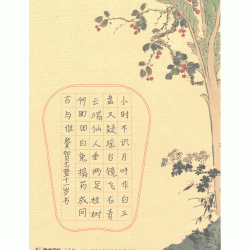 小时不识月呼作白玉
盘又疑瑶台镜飞在青
云端仙人垂两足桂树
何团团白兔捣药成问
言与谁餐 贺志 十一岁书